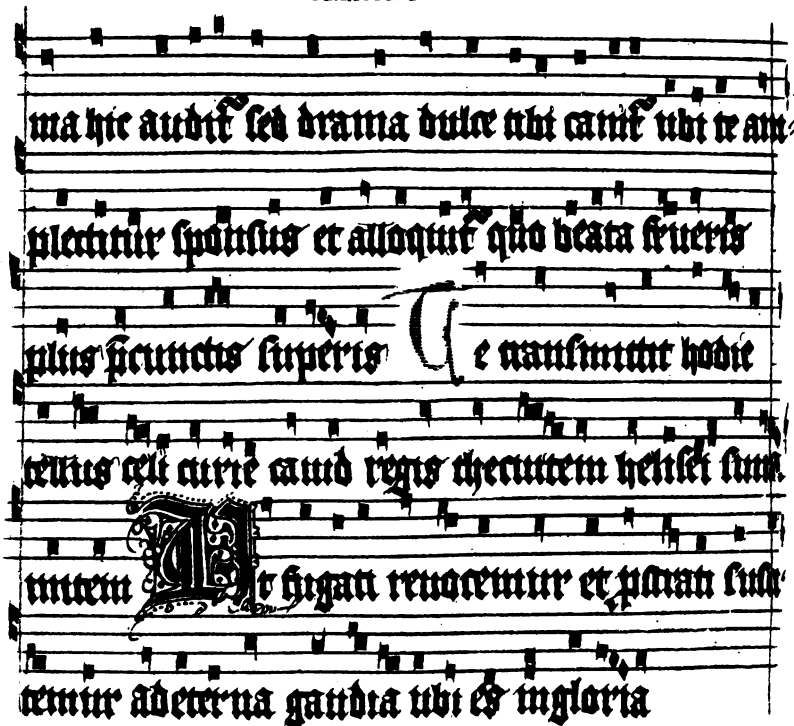 ma hic audit᷑ sed drama dulce tibi canit᷑ ubi te am-
plectitur sponsus et alloquit᷑ quo beata frueris
plus p̄cunctis superis Te transmittit hodie
tellus celi curie candd regis thecuitem helisei suna
mitem Ut fugati reuocemur et pstrati susci
temur adeterna gaudia ubi es ingloria